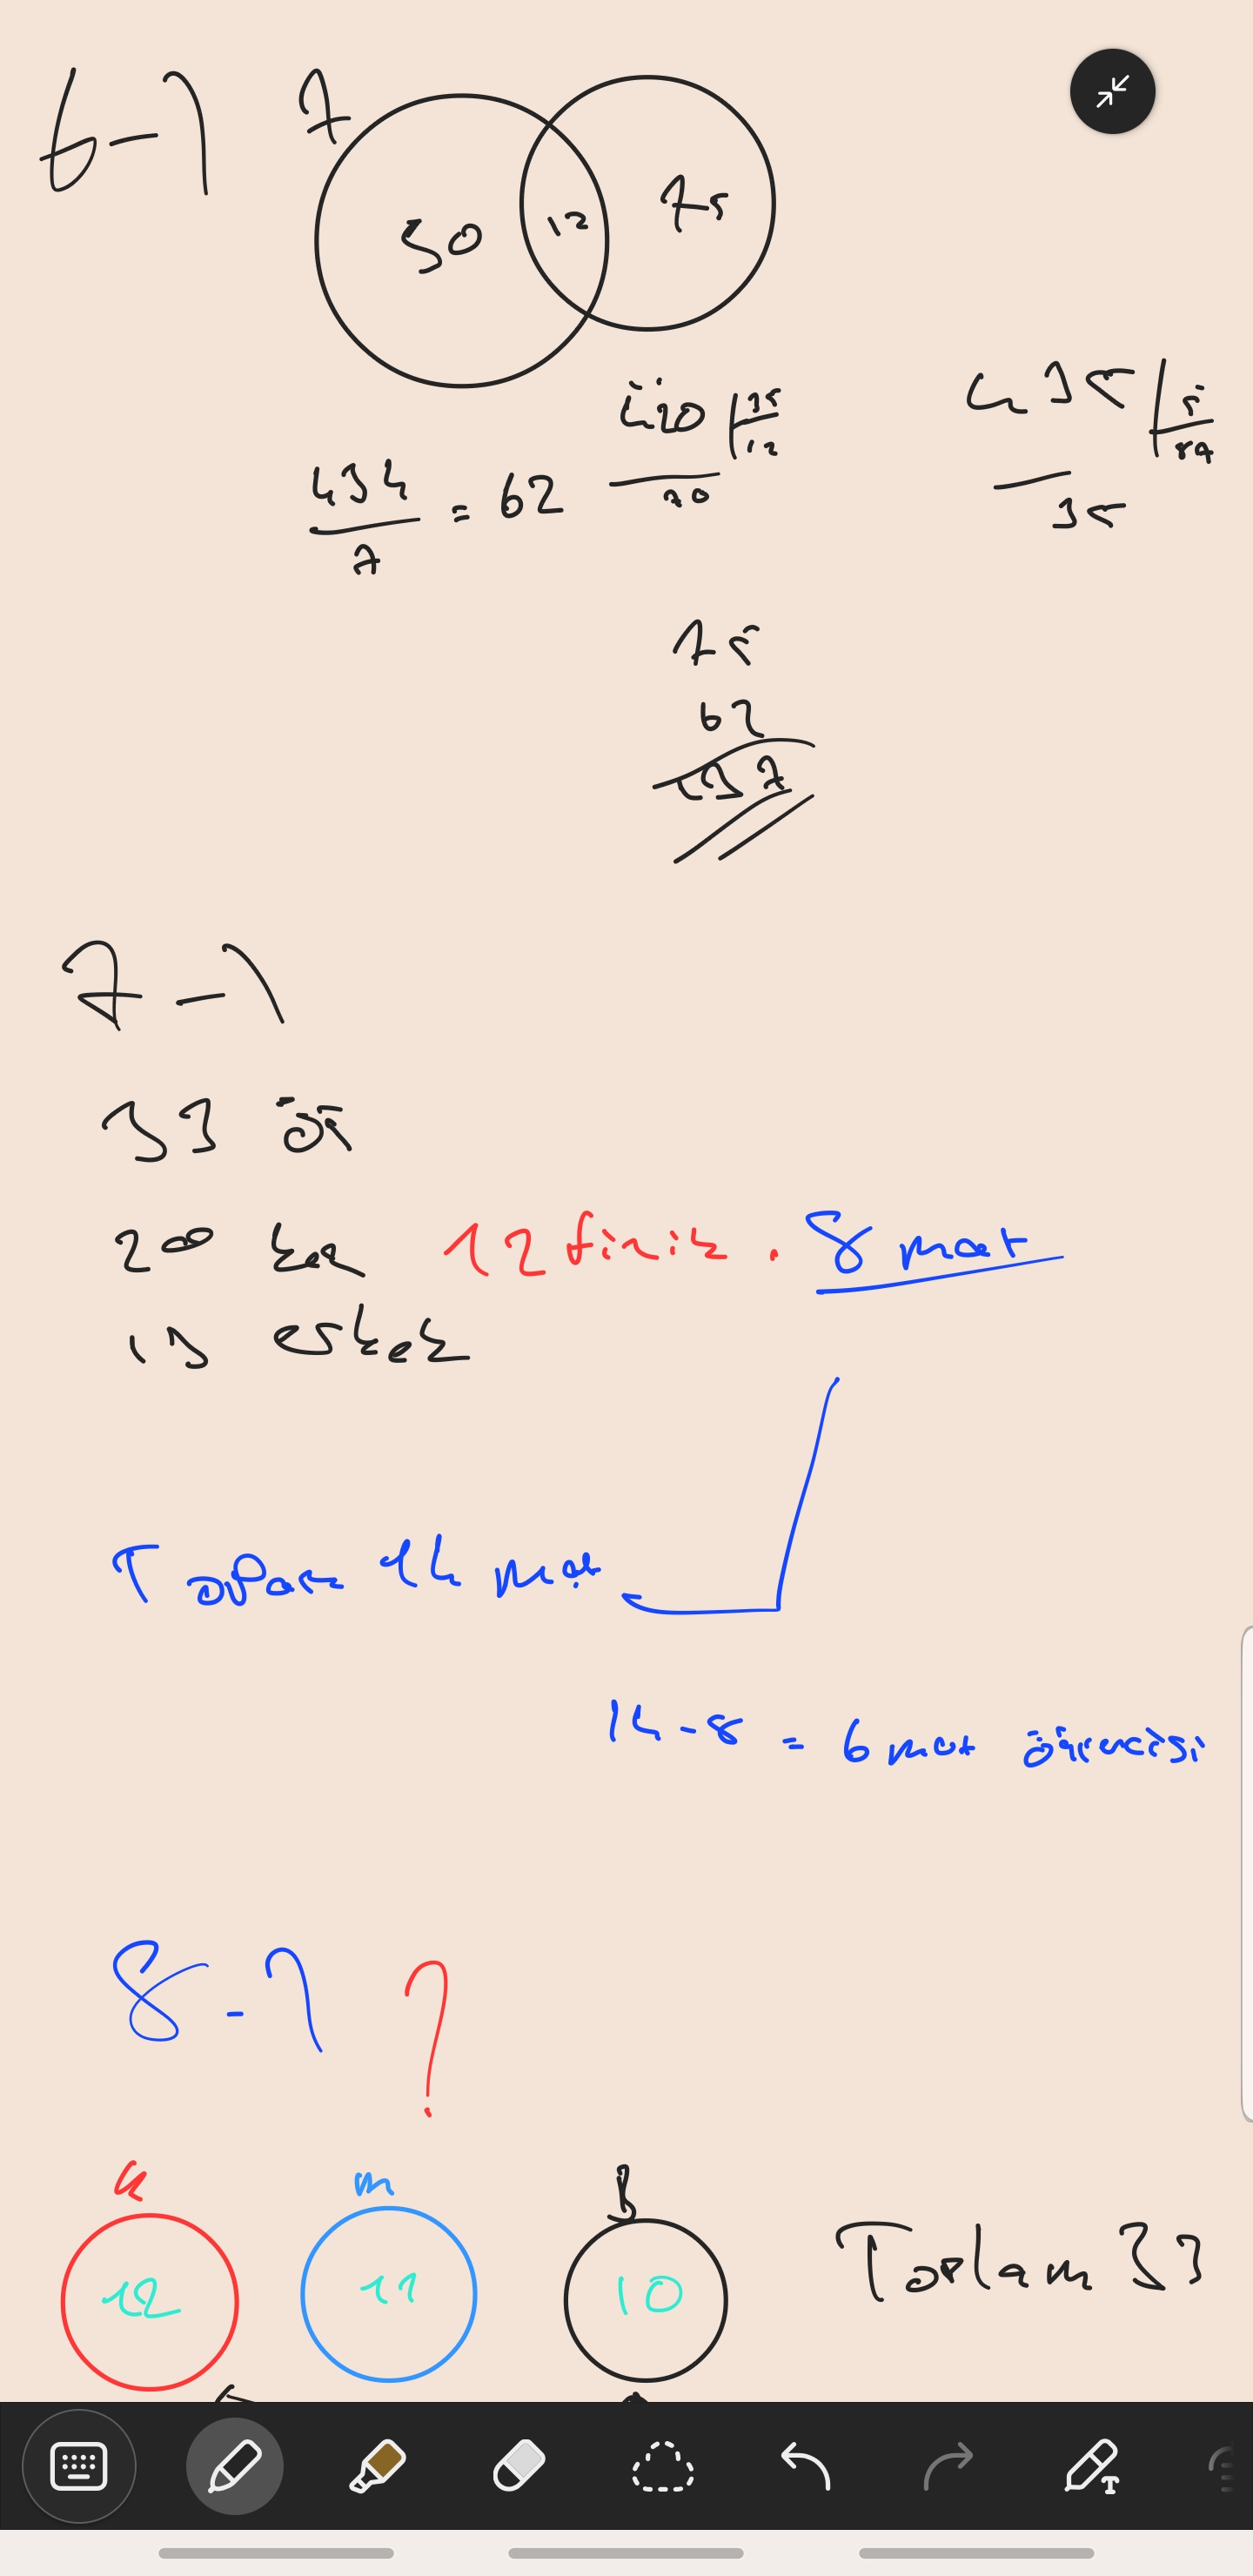 6-)
7
50 12 75
420 | 35
12
70
435 | 5
87
35
434
7
= 62
75
62
137
7-)
33 öğ
20 kız 12 fizik . 8 mat
13 erkek
Toplam 14 mat
14-8 = 6 mat öğrencisi
8-) ?
k m
12 11 10
Toplam 33